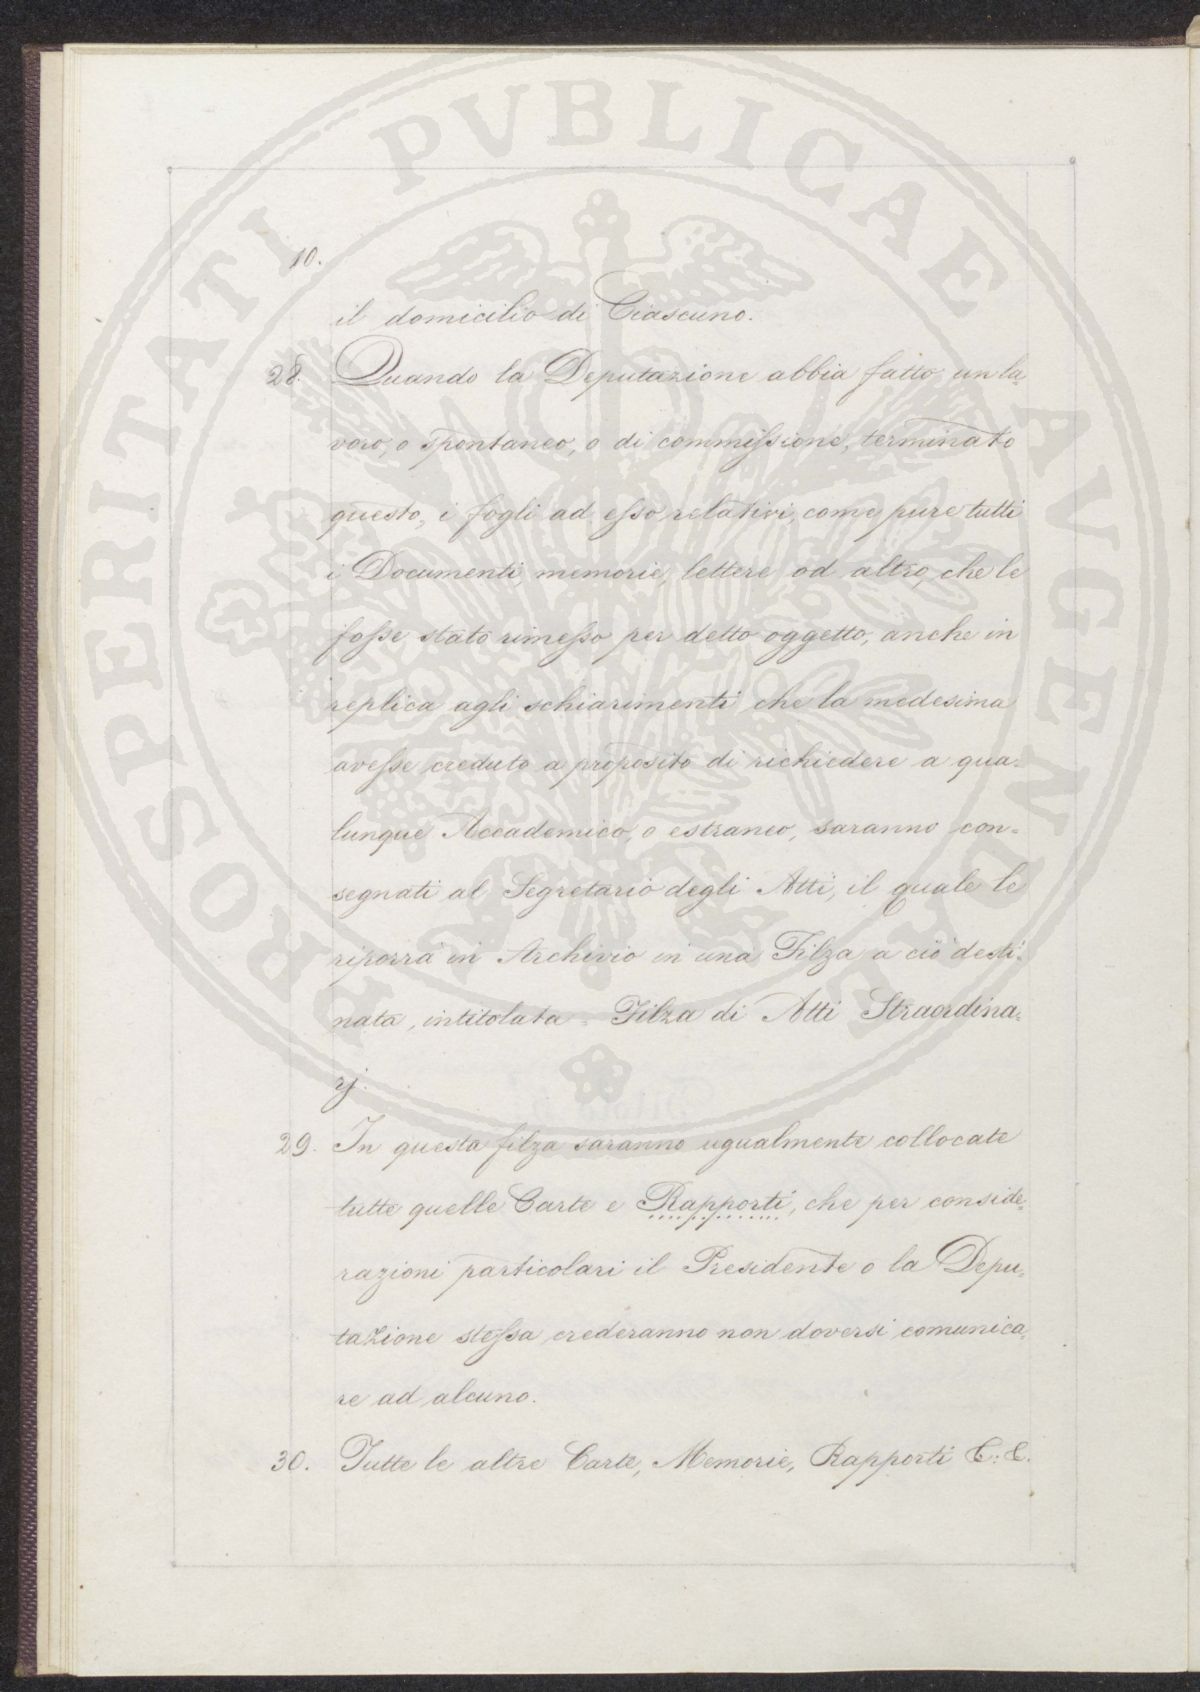 PROSPERITATI PVBLICAE AVGENDAE
10.
il domicilio di Ciascuno.
28. Quando la Deputazione abbia fatto un la=
voro, o spontaneo, o di commissione, terminato
questo, i fogli ad esso relativi, come pure tutti
i Documenti memorie, lettere od altro, che le
fosse stato rimesso per detto oggetto, anche in
replica agli schiarimenti che la medesima
avesse creduto a proposito di richiedere a qua=
lunque Accademico, o estraneo, saranno con=
segnati al Segretario degli Atti, il quale le
riporrà in Archivio in una Filza a ciò desti=
nata, intitolata = Filza di Atti Straordina=
rj.
29. In questa filza saranno ugualmente collocate
tutte quelle Carte e Rapporti, che per conside=
razioni particolari il Presidente o la Depu=
tazione stessa crederanno non doversi comunica=
re ad alcuno.
30. Tutte le altre Carte, Memorie, Rapporti E: E.